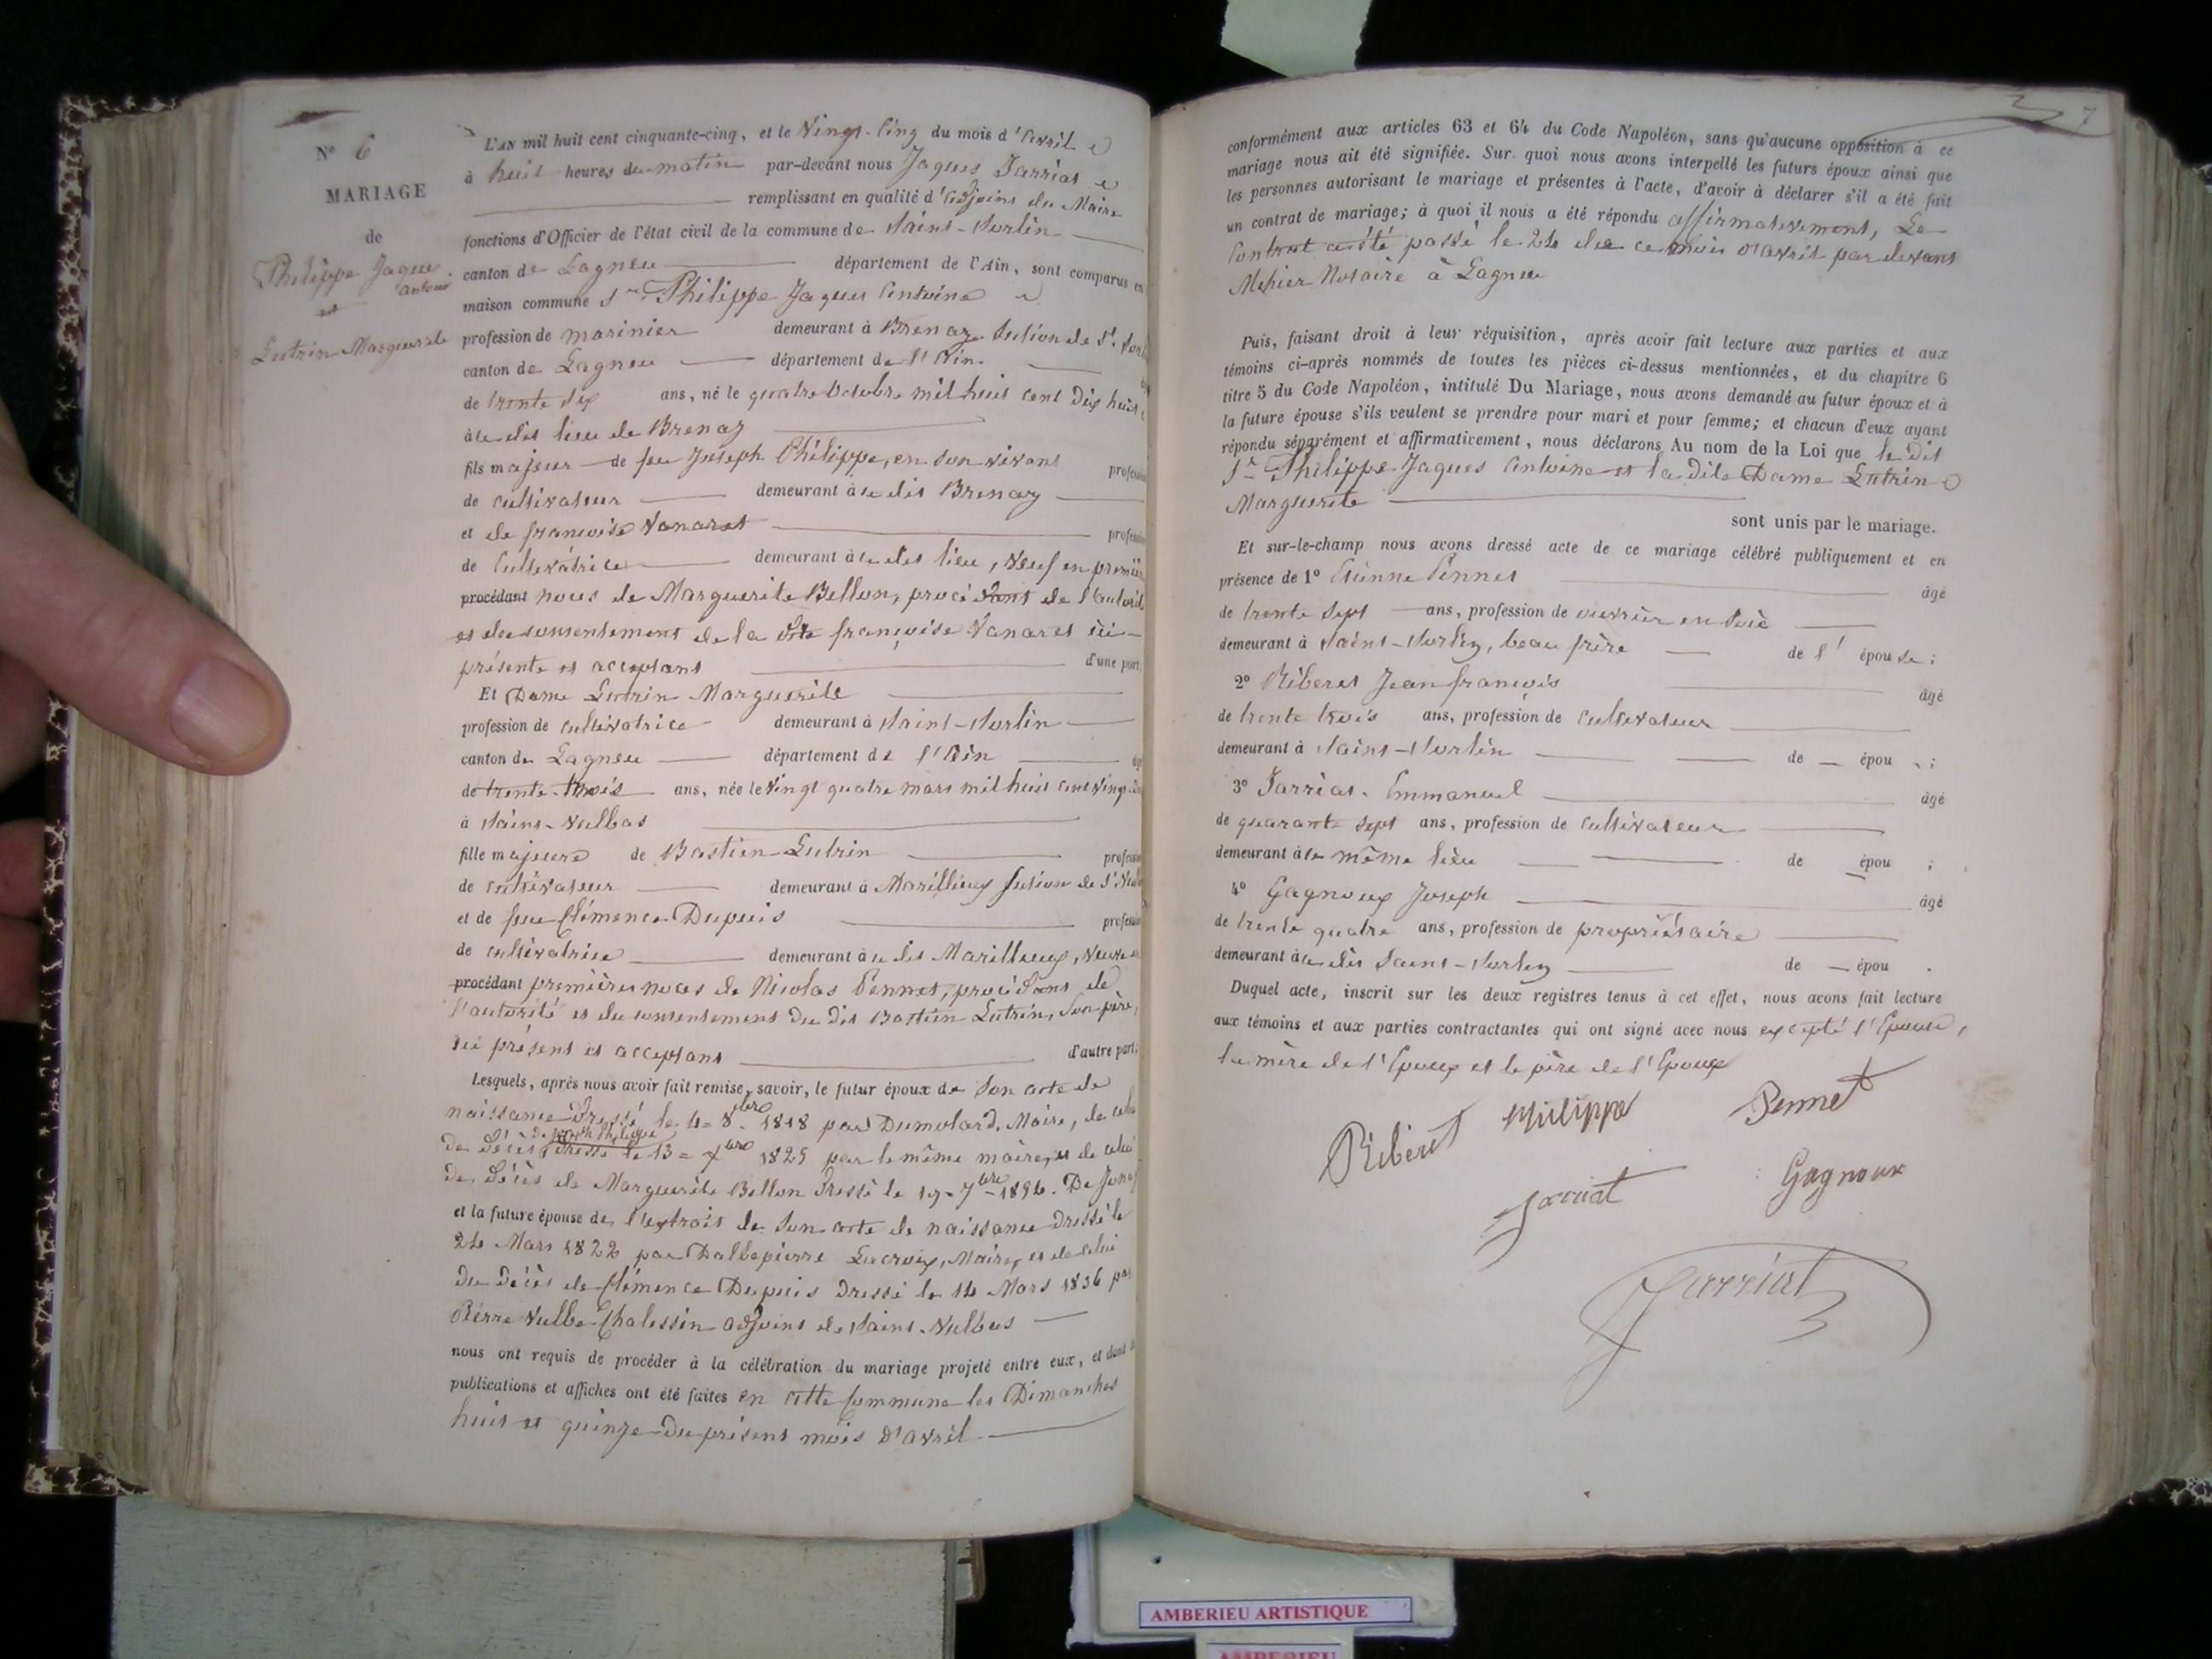 N° 6
MARIAGE
de
Philippe Jaques
antoine
et
Lutrin Marguerite
L'AN mil huit cent cinquante-cinq, et le Vingt-Cinq du mois d'Avril
à huit heures du matin par-devant nous Jaques Jarriat
remplissant en qualité d'adjoint du Maire
fonctions d'Officier de l'état civil de la commune de Saint-Sorlin
canton de Lagneu département de l'Ain, sont comparus en
maison commune Sr Philippe Jaques Antoine
profession de marinier demeurant à Brenaz Section de St Sorlin
canton de Lagneu département de l'Ain
de trente six ans, né le quatre Octobre mil huit cent Dix huit
à ce dit lieu de Brenaz
fils majeur de feu Joseph Philippe, en son vivant profession
de cultivateur demeurant à ce dit Brenaz
et de françoise Vanaret profession
de Cultivatrice demeurant à ce dit lieu, Veuf en première
procédant noces de Marguerite Bellon, procédant de l'autorité
et du consentement de la dite françoise Vanaret ici
présente et acceptant d'une part,
Et Dame Lutrin Marguerite
profession de cultivatrice demeurant à Saint-Sorlin
canton de Lagneu département de l'Ain
de trente-trois ans, née le Vingt quatre mars mil huit cent vingt
à Saint-Vulbas
fille majeure de Bastien Lutrin profession
de cultivateur demeurant à Marillieux Section de St Vulbas
et de feue Clémence Dupuis profession
de cultivatrice demeurant à ce dit Marillieux, Veuve
procédant premières noces de Nicolas Pennet, procédant de
l'autorité et du consentement du dit Bastien Lutrin, son père,
ici présent et acceptant d'autre part;
Lesquels, après nous avoir fait remise, savoir, le futur époux de son acte de
naissance Dressé le 4 = 8bre 1818 par Dumolard, Maire, de celui
de Joseph Philippe
de décès dressé le 13 = 7bre 1825 par le même maire, et de celui
de décès de Marguerite Bellon dressé le 19 - 7bre - 1854. De
et la future épouse de l'extrait de son acte de naissance dressé le
24 Mars 1822 par Dallepierre Lacroix, Maire, et de celui
du décès de Clémence Dupuis dressé le 14 Mars 1836 par
Pierre Vulbe Chalessin adjoint de Saint-Vulbas
nous ont requis de procéder à la célébration du mariage projeté entre eux, et dont
publications et affiches ont été faites en cette Commune les Dimanches
huit et quinze du présent mois d'avril
7
conformément aux articles 63 et 64 du Code Napoléon, sans qu'aucune opposition à ce
mariage nous ait été signifiée. Sur quoi nous avons interpellé les futurs époux ainsi que
les personnes autorisant le mariage et présentes à l'acte, d'avoir à déclarer s'il a été fait
un contrat de mariage; à quoi il nous a été répondu affirmativement, Le
Contrat a été passé le 24 de ce mois d'avril par devant
Mehier Notaire à Lagneu
Puis, faisant droit à leur réquisition, après avoir fait lecture aux parties et aux
témoins ci-après nommés de toutes les pièces ci-dessus mentionnées, et du chapitre 6
titre 5 du Code Napoléon, intitulé Du Mariage, nous avons demandé au futur époux et à
la future épouse s'ils veulent se prendre pour mari et pour femme; et chacun d'eux ayant
répondu séparément et affirmativement, nous déclarons Au nom de la Loi que le dit
Sr Philippe Jaques Antoine et la dite Dame Lutrin
Marguerite
sont unis par le mariage.
Et sur-le-champ nous avons dressé acte de ce mariage célébré publiquement et en
présence de 1° Etienne Pennet âgé
de trente Sept ans, profession de ouvrier en Soie
demeurant à Saint-Sorlin, beau frère de l'épouse;
2° Riberet Jean françois âgé
de trente trois ans, profession de cultivateur
demeurant à Saint-Sorlin de épou ;
3° Jarriat Emmanuel âgé
de quarante sept ans, profession de cultivateur
demeurant à ce même lieu de épou ;
4° Gagnoux Joseph âgé
de trente quatre ans, profession de propriétaire
demeurant à ce dit Saint-Sorlin de épou .
Duquel acte, inscrit sur les deux registres tenus à cet effet, nous avons fait lecture
aux témoins et aux parties contractantes qui ont signé avec nous excepté l'Epouse,
la mère de l'Epoux et le père de l'Epoux
Riberet Philippe Pennet
Jarriat Gagnoux
Jarriat
AMBERIEU ARTISTIQUE
AMBERIEU